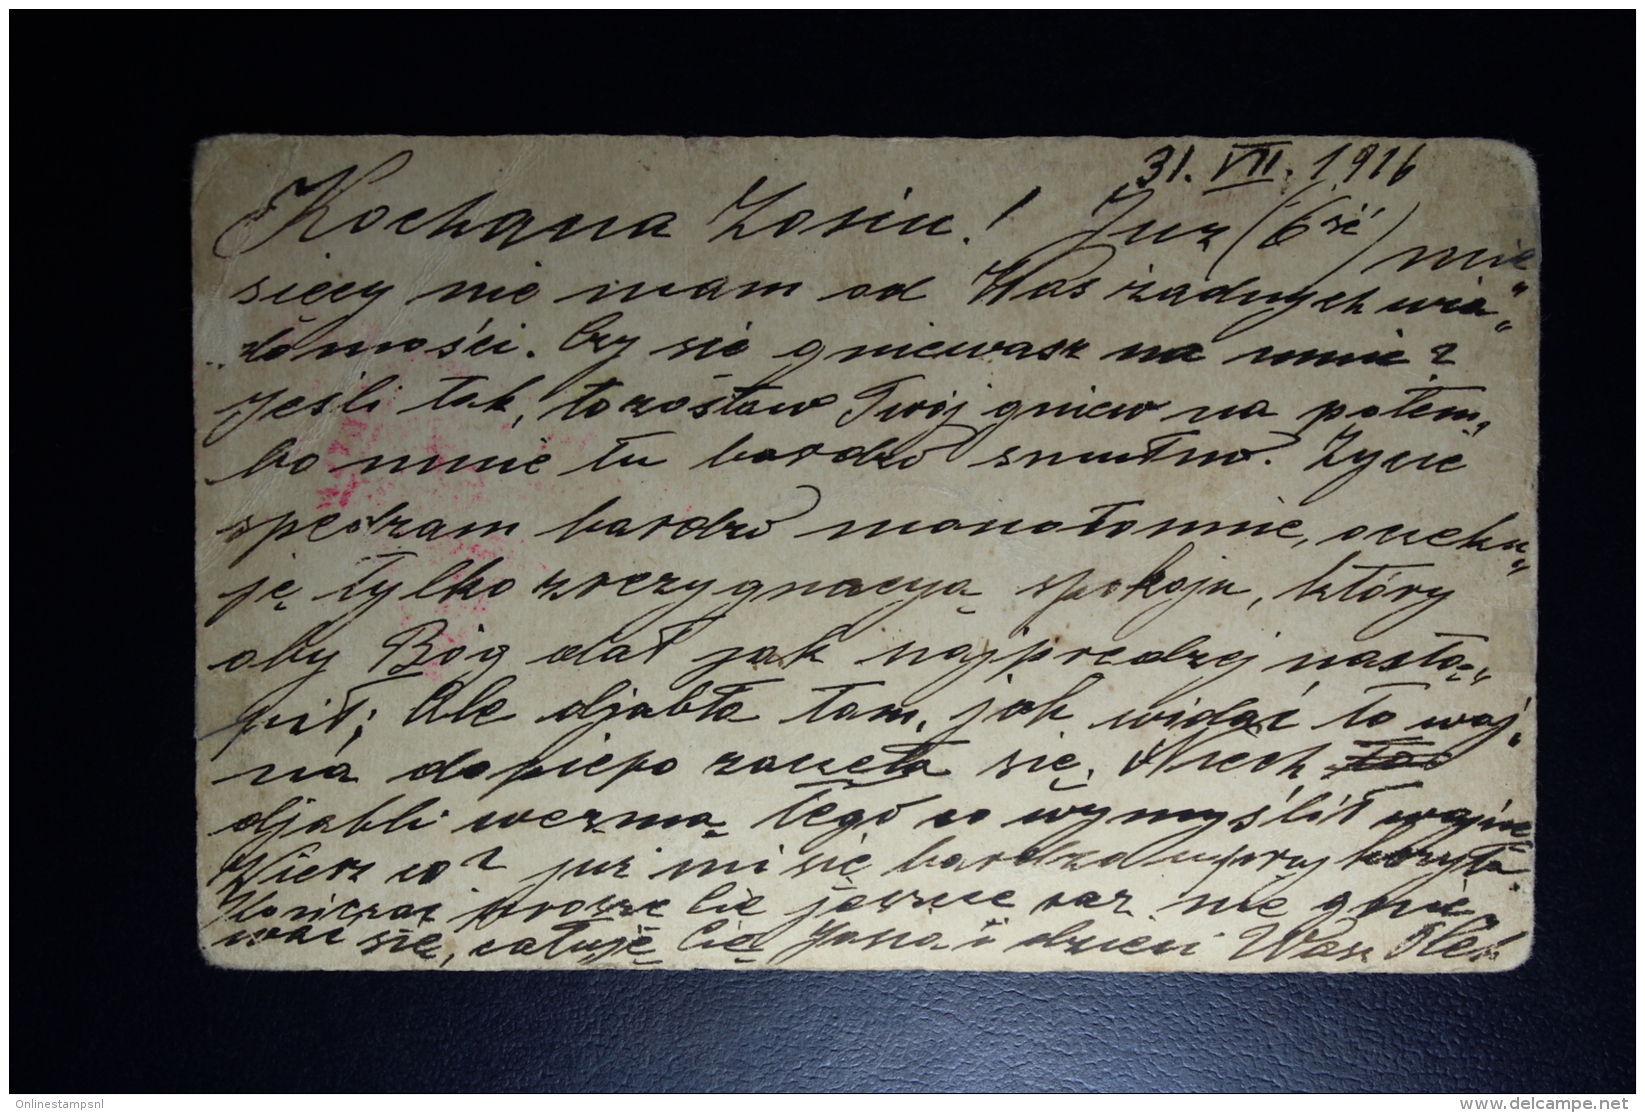 31. VII. 1916
Kochana Zosiu! Już (6ść) mie
sięcy nie mam od Was żadnych wia„
domości. Czy się gniewasz na mnie?
Jeśli tak, to zostaw Twój gniew na potem,
bo mnie tu bardzo smutno. Życie
spędzam bardzo monotonnie, oczeku„
ję tylko z rezygnacyą spokoju, który
oby Bóg dał jak najprędzej nastą„
pił; Ale djabła tam, jak widać to woj„
na dopiero zaczęła się. Niech
djabli wezmą tego co wymyślił wojnę
Wiesz co? już mi się bardzo
Kończąc proszę Cię jeszcze raz nie gnie„
wać się, całuję Cię Jasia i dzieci Wasz Olek
Onlinestampsnl
http://www.delcampe.net